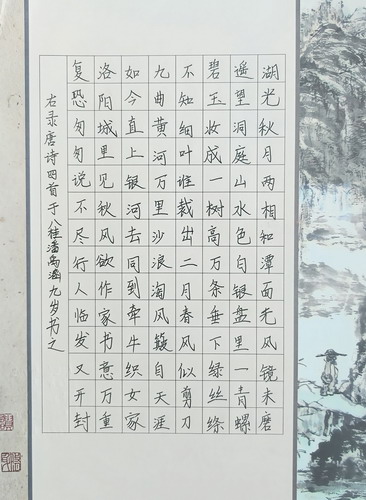 湖光秋月两相和潭面无风镜未磨
遥望洞庭山水色白银盘里一青螺
碧玉妆成一树高万条垂下绿丝绦
不知细叶谁裁出二月春风似剪刀
九曲黄河万里沙浪淘风簸自天涯
如今直上银河去同到牵牛织女家
洛阳城里见秋风欲作家书意万重
复恐匆匆说不尽行人临发又开封
右录唐诗四首于八桂潘禹九岁书之